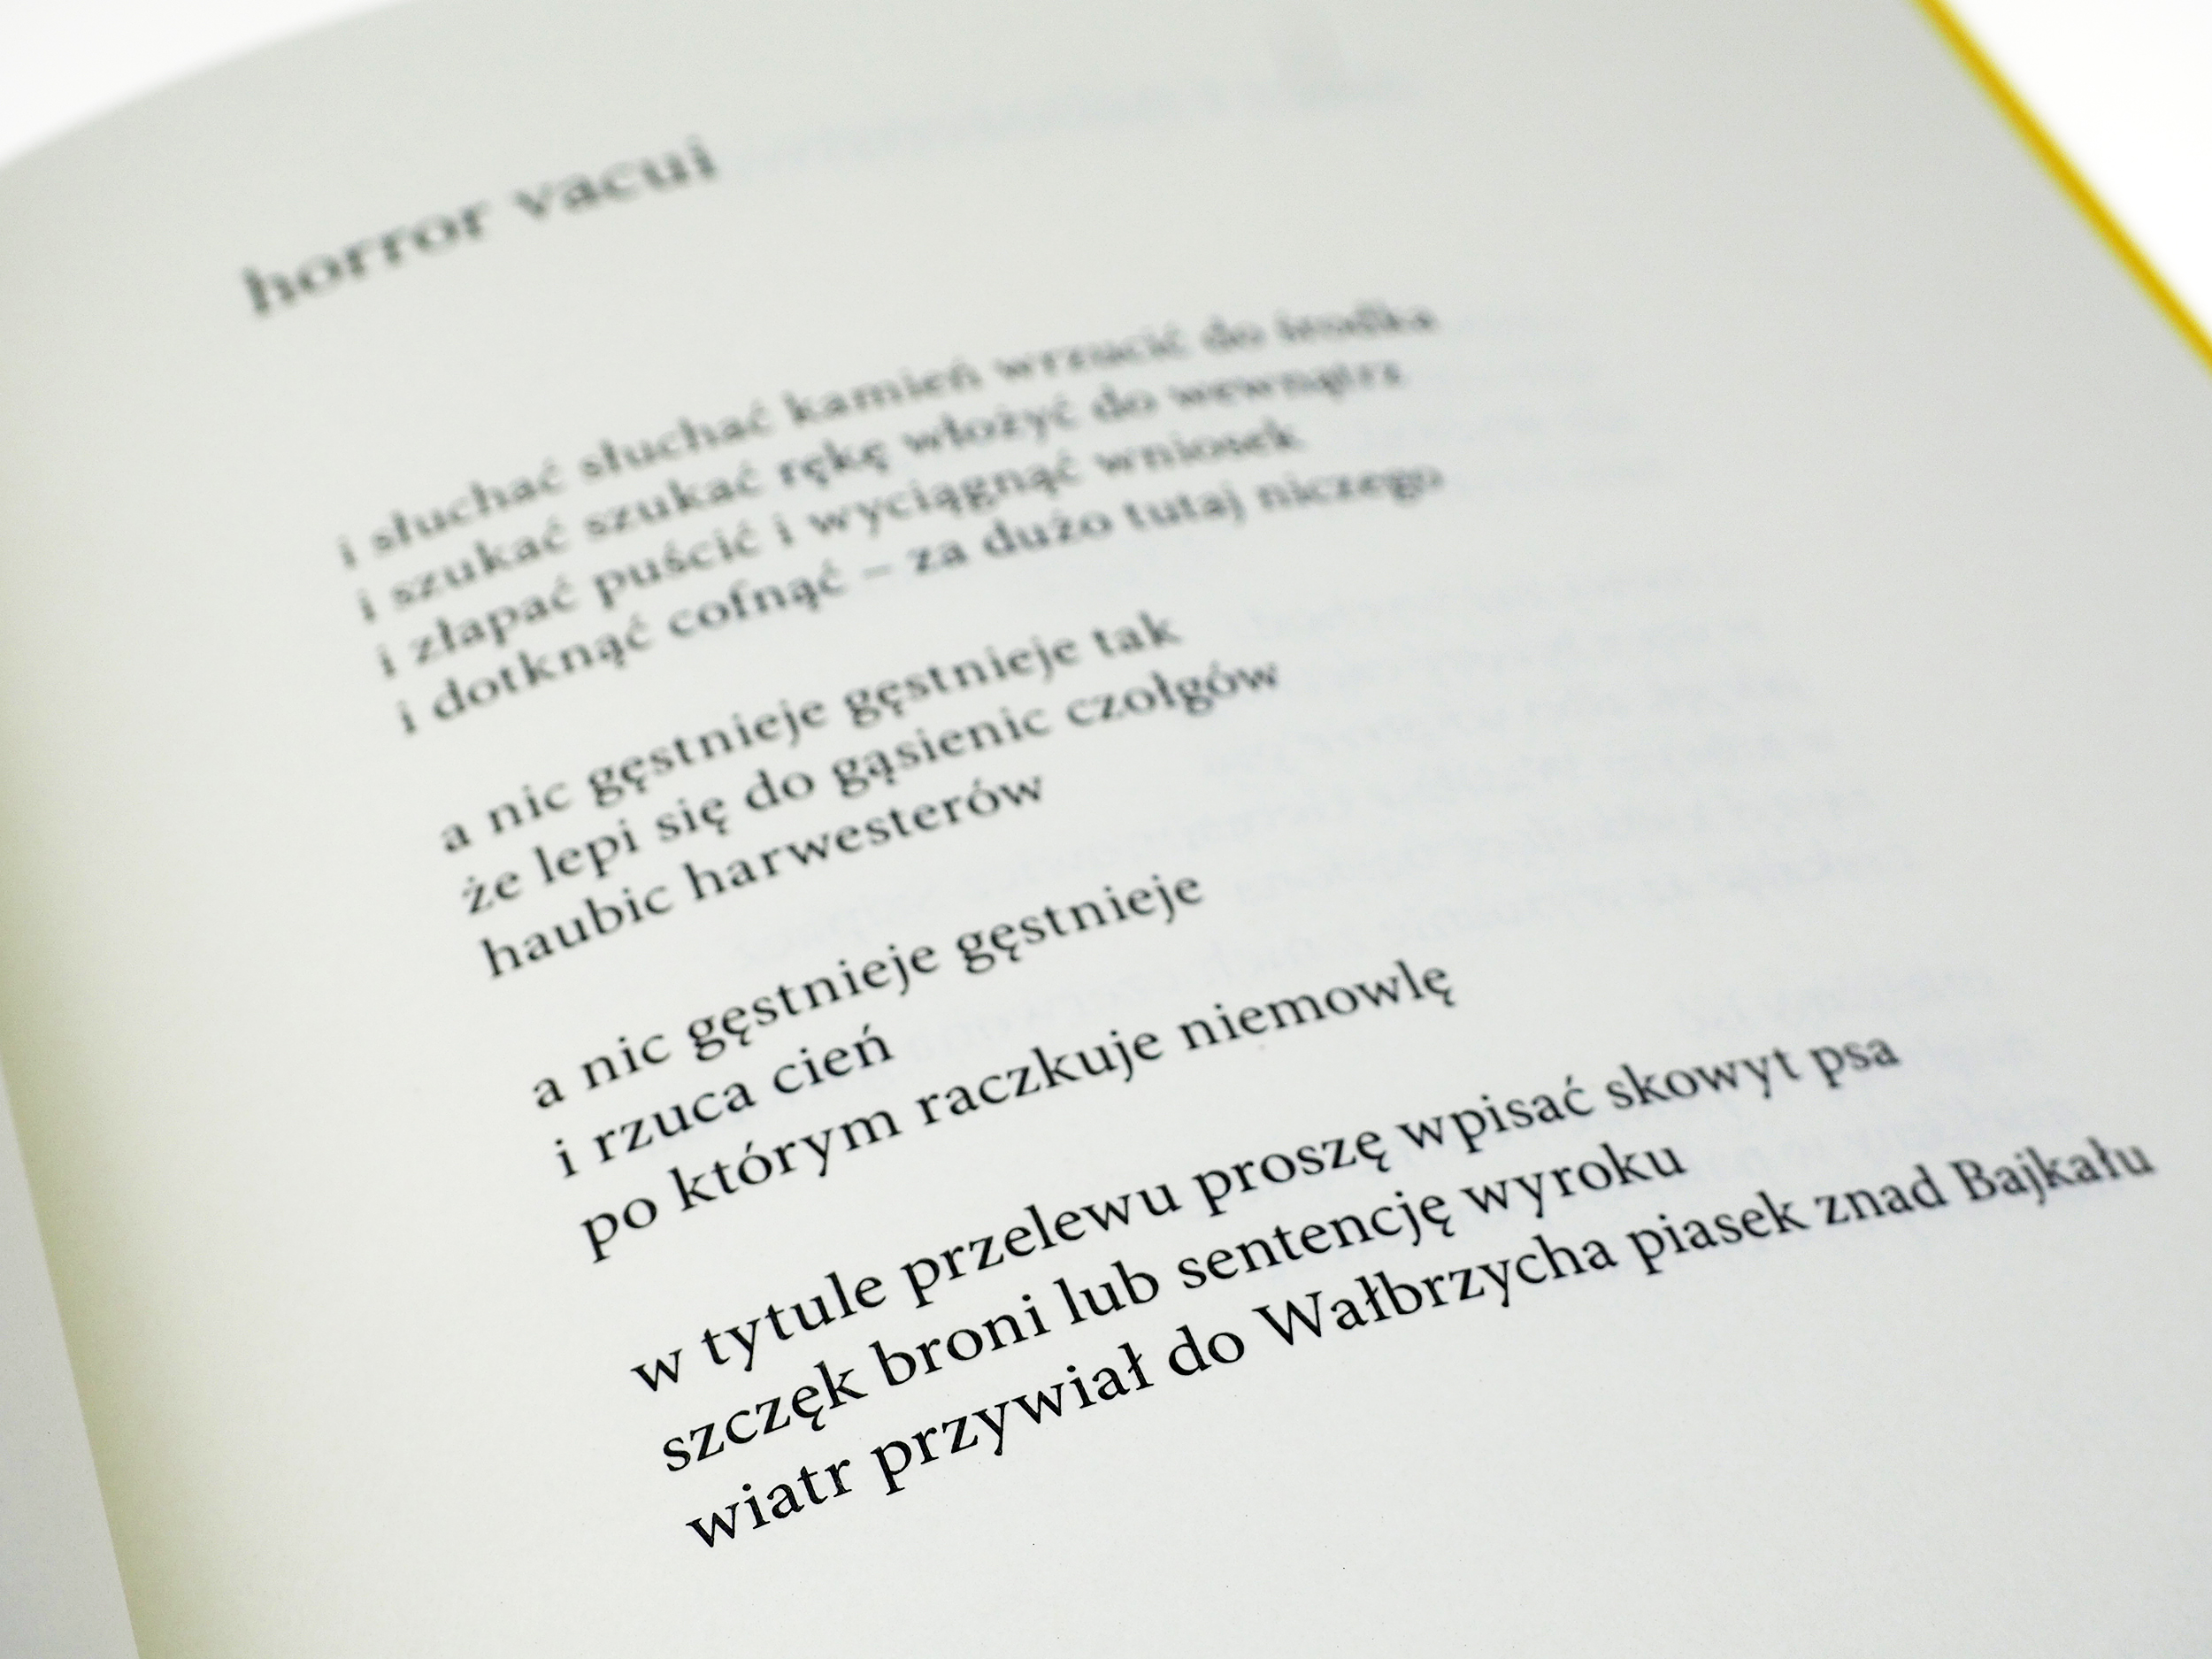 horror vacui
i słuchać słuchać kamień wrzucić do środka
i szukać szukać rękę włożyć do wewnątrz
i złapać puścić i wyciągnąć wniosek
i dotknąć cofnąć – za dużo tutaj niczego
a nic gęstnieje gęstnieje tak
że lepi się do gąsienic czołgów
haubic harwesterów
a nic gęstnieje gęstnieje
i rzuca cień
po którym raczkuje niemowlę
w tytule przelewu proszę wpisać skowyt psa
szczęk broni lub sentencję wyroku
wiatr przywiał do Wałbrzycha piasek znad Bajkału